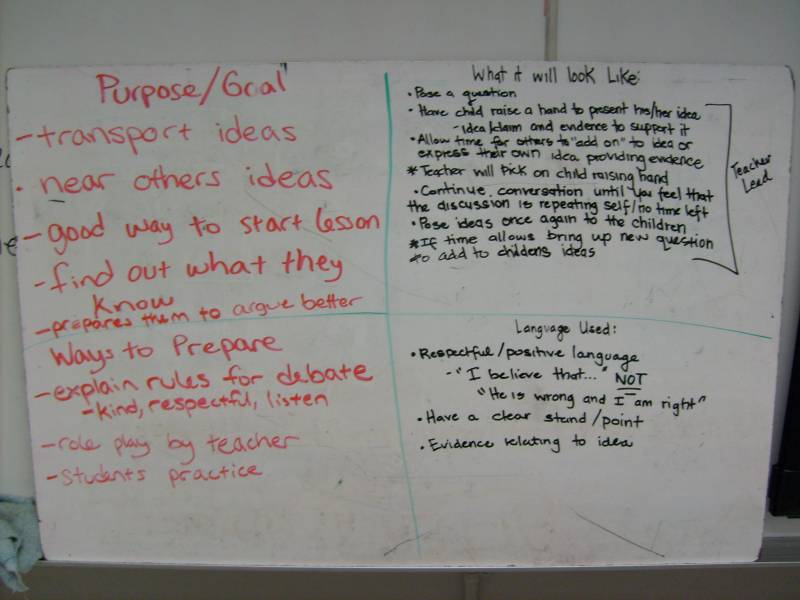 Purpose/Goal
- transport ideas
• near others ideas
- good way to start lesson
- find out what they
know
- prepares them to argue better
What it will look like:
• Pose a question
• Have child raise a hand to present his/her idea
- Idea/claim and evidence to support it
• Allow time for others to "add on" to idea or
express their own idea providing evidence
* Teacher will pick on child raising hand
• Continue conversation until you feel that
the discussion is repeating self/no time left
• Pose ideas once again to the children
* If time allows bring up new question
to add to childens ideas
Teacher
Lead
Ways to Prepare
- explain rules for debate
- kind, respectful, listen
- role play by teacher
- students practice
Language Used:
• Respectful/positive language
- "I believe that..." NOT
"He is wrong and I am right"
• Have a clear stand/point
• Evidence relating to idea